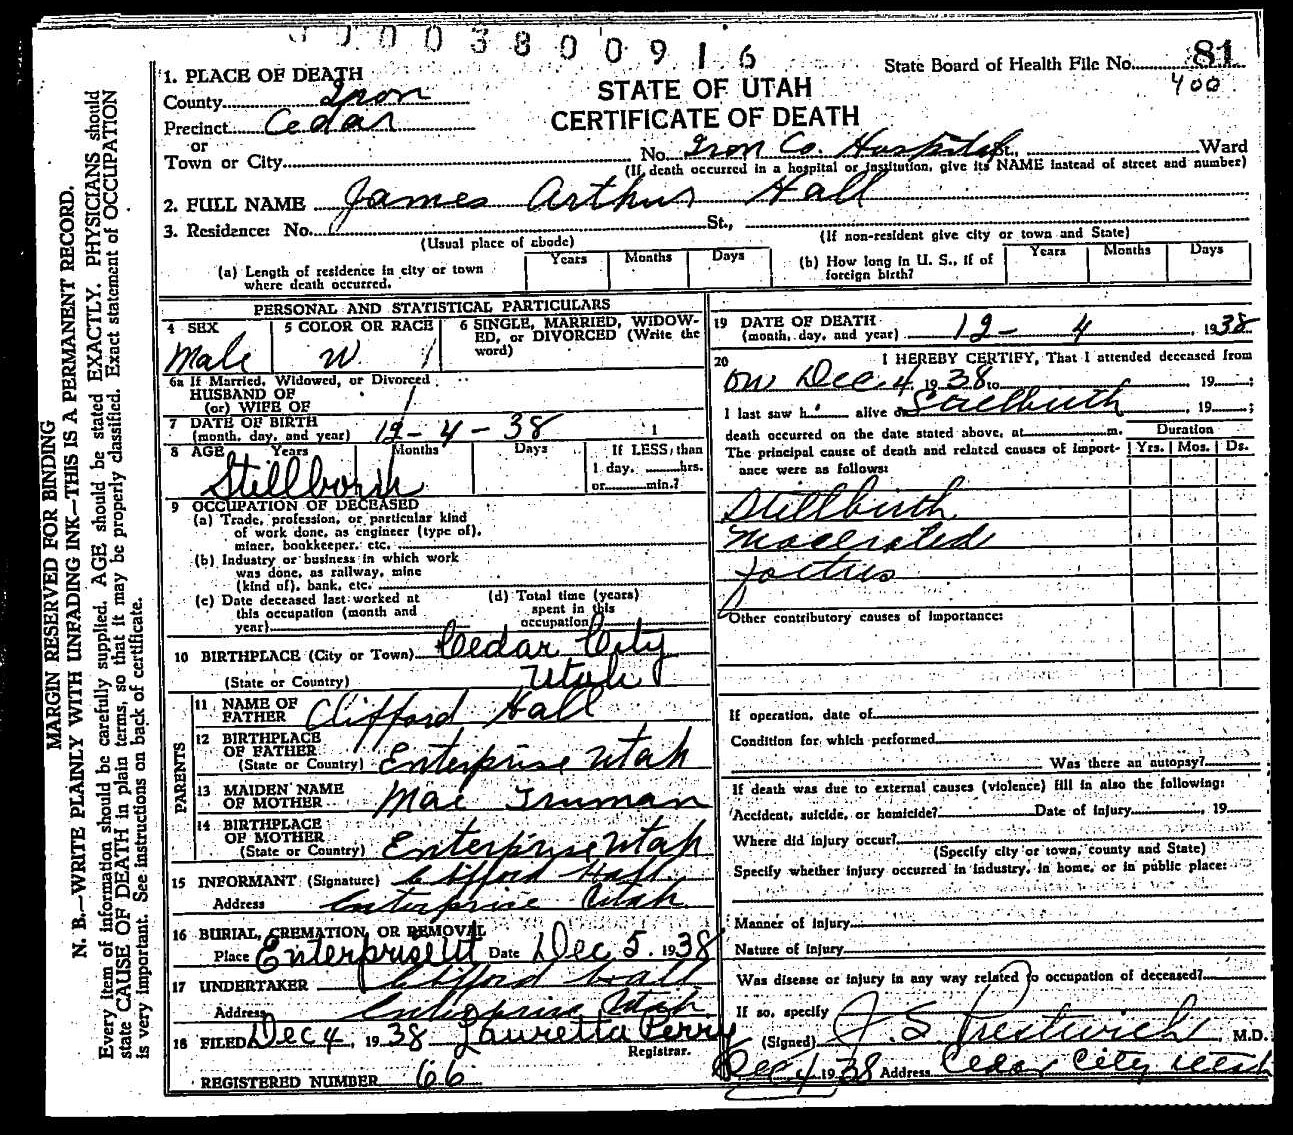 00003800916
State Board of Health File No. 81
400
STATE OF UTAH
CERTIFICATE OF DEATH
1. PLACE OF DEATH
County Iron
Precinct Cedar
or
Town or City
No. Iron Co. Hospital St., Ward
(If death occurred in a hospital or institution, give its NAME instead of street and number)
2. FULL NAME James Arthur Hall
3. Residence: No. St.,
(Usual place of abode)
(If non-resident give city or town and State)
(a) Length of residence in city or town where death occurred.
Years Months Days
(b) How long in U. S., if of foreign birth?
Years Months Days
PERSONAL AND STATISTICAL PARTICULARS
4 SEX
Male
5 COLOR OR RACE
W
6 SINGLE, MARRIED, WIDOW-
ED, or DIVORCED (Write the
word)
6a If Married, Widowed, or Divorced
HUSBAND OF
(or) WIFE OF
7 DATE OF BIRTH
(month, day, and year) 12-4-38
8 AGE Years Months Days If LESS than
1 day, hrs.
or min.?
Stillborn
9 OCCUPATION OF DECEASED
(a) Trade, profession, or particular kind
of work done, as engineer (type of),
miner, bookkeeper, etc.
(b) Industry or business in which work
was done, as railway, mine
(kind of), bank, etc.
(c) Date deceased last worked at
this occupation (month and
year)
(d) Total time (years)
spent in this
occupation
10 BIRTHPLACE (City or Town) Cedar City
(State or Country) Utah
PARENTS
11 NAME OF
FATHER Clifford Hall
12 BIRTHPLACE
OF FATHER
(State or Country) Enterprise Utah
13 MAIDEN NAME
OF MOTHER Mae Truman
14 BIRTHPLACE
OF MOTHER
(State or Country) Enterprise Utah
15 INFORMANT (Signature) Clifford Hall
Address Enterprise Utah
16 BURIAL, CREMATION, OR REMOVAL
Place Enterprise Ut Date Dec 5, 1938
17 UNDERTAKER Clifford Hall
Address Enterprise Utah
18 FILED Dec 4, 1938 Lauretta Perry
Registrar.
REGISTERED NUMBER 66
19 DATE OF DEATH
(month, day, and year) 12-4, 1938
20 I HEREBY CERTIFY, That I attended deceased from
on Dec. 4 1938 to , 19 ;
I last saw h alive on Stillbirth , 19 ;
death occurred on the date stated above, at m.
The principal cause of death and related causes of import-
ance were as follows:
Duration
Yrs. Mos. Ds.
Stillbirth
Macerated
foetus
Other contributory causes of importance:
If operation, date of
Condition for which performed
Was there an autopsy?
If death was due to external causes (violence) fill in also the following:
Accident, suicide, or homicide? Date of injury , 19
Where did injury occur?
(Specify city or town, county and State)
Specify whether injury occurred in industry, in home, or in public place:
Manner of injury
Nature of injury
Was disease or injury in any way related to occupation of deceased?
If so, specify
(Signed) J. S. Prestwich, M.D.
Dec 4 1938 Address Cedar City Utah
MARGIN RESERVED FOR BINDING
N. B.—WRITE PLAINLY WITH UNFADING INK—THIS IS A PERMANENT RECORD.
Every item of information should be carefully supplied. AGE should be stated EXACTLY. PHYSICIANS should
state CAUSE OF DEATH in plain terms, so that it may be properly classified. Exact statement of OCCUPATION
is very important. See instructions on back of certificate.